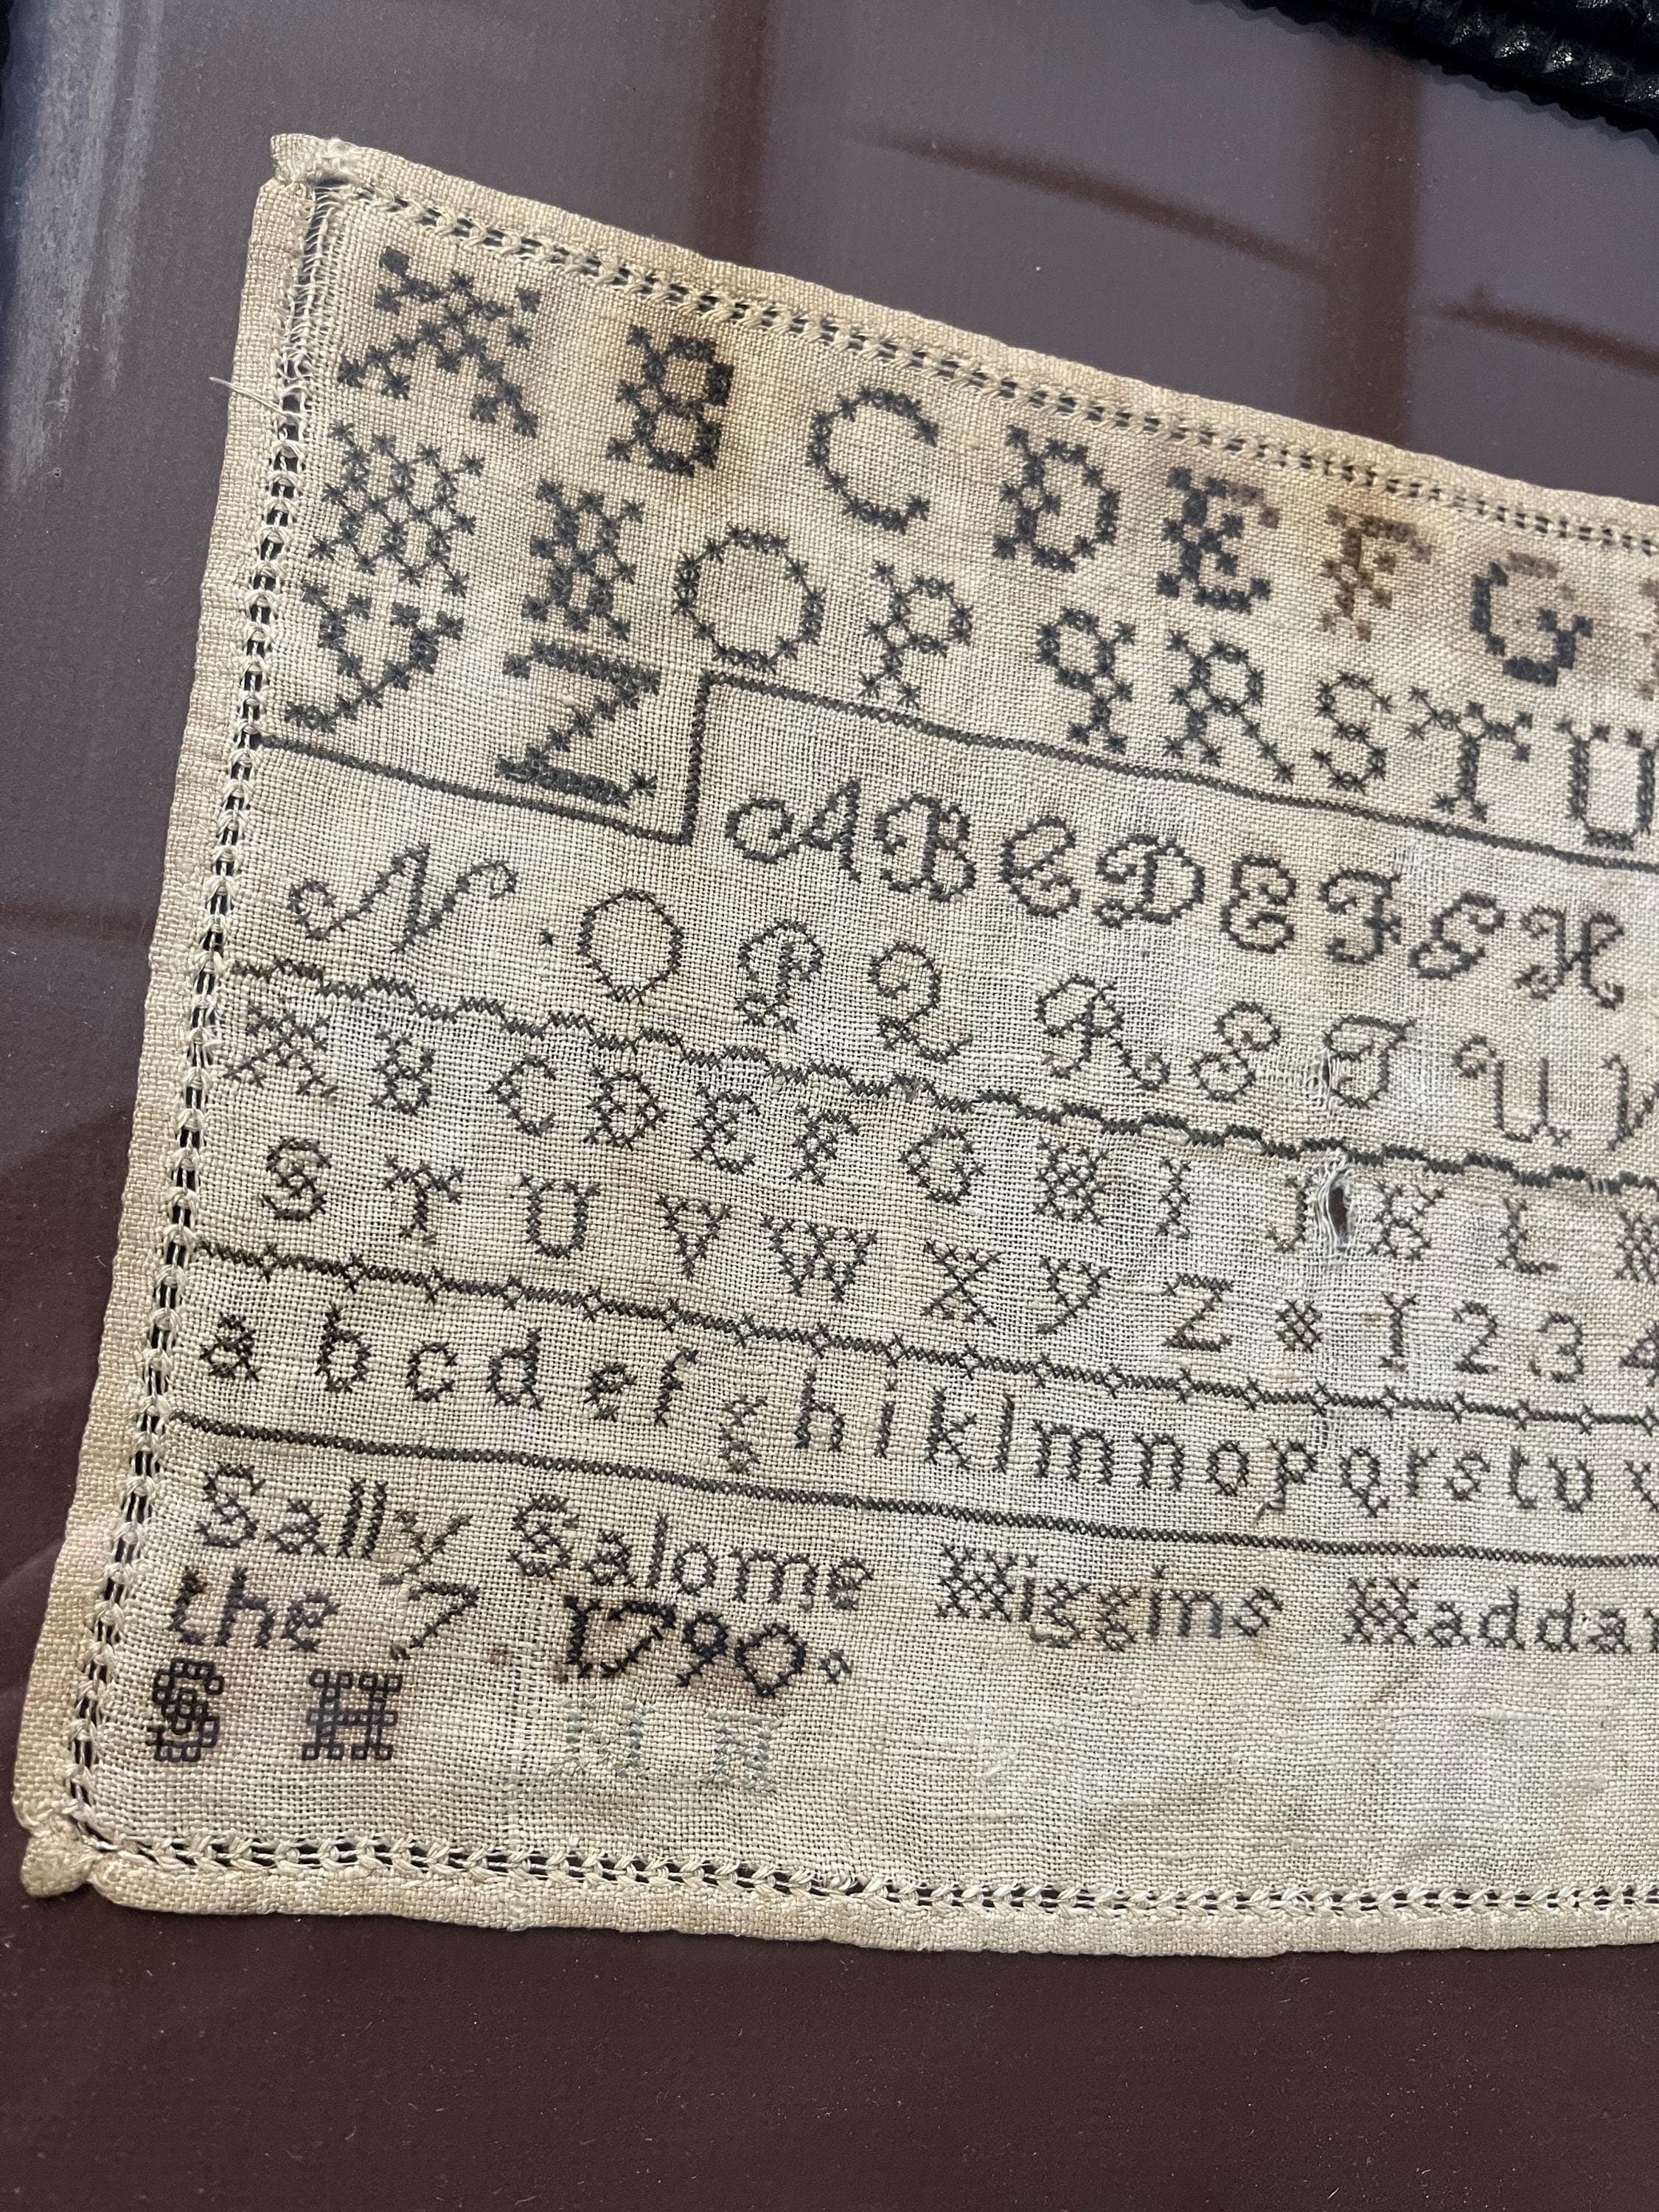 A B C D E F G
M N O P Q R S T U
Y Z
A B C D E F G H
N O P Q R S T U V
A B C D E F G H I J K L M
S T U V W X Y Z 1 2 3 4
a b c d e f g h i k l m n o p q r s t u v
Sally Salome Higgins Haddam
the 7 1790
S H N H